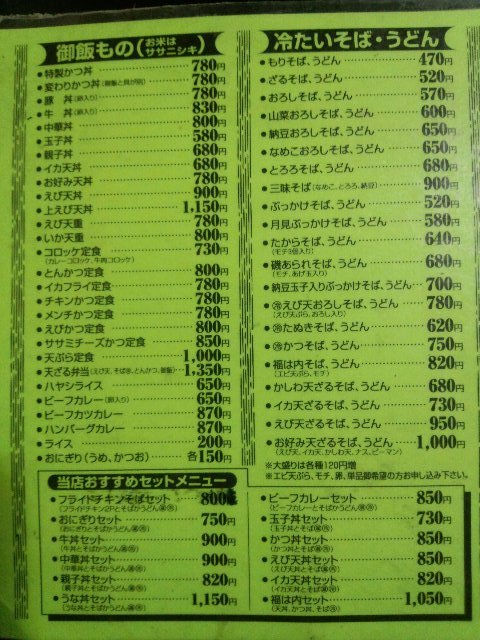 御飯もの(お米はササニシキ)
・特製かつ丼 780円
・変わりかつ丼(御飯と具が別) 780円
・豚 丼(卵入り) 780円
・牛 丼(卵入り) 830円
・中華丼 800円
・玉子丼 580円
・親子丼 680円
・イカ天丼 680円
・お好み天丼 780円
・えび天丼 900円
・上えび天丼 1,150円
・えび天重 780円
・いか天重 800円
・コロッケ定食 730円
(カレーコロッケ、牛肉コロッケ)
・とんかつ定食 800円
・イカフライ定食 780円
・チキンかつ定食 780円
・メンチかつ定食 780円
・えびかつ定食 800円
・ササミチーズかつ定食 850円
・天ぷら定食 1,000円
・天ざる弁当(えび天、そば㊌、とんかつ、御飯) 1,350円
・ハヤシライス 650円
・ビーフカレー(卵入り) 650円
・ビーフカツカレー 870円
・ハンバーグカレー 870円
・ライス 200円
・おにぎり(うめ、かつお) 各150円
冷たいそば・うどん
・もりそば、うどん 470円
・ざるそば、うどん 520円
・おろしそば、うどん 570円
・山菜おろしそば、うどん 600円
・納豆おろしそば、うどん 650円
・なめこおろしそば、うどん 650円
・とろろそば、うどん 680円
・三味そば(なめこ、とろろ、納豆) 900円
・ぶっかけそば、うどん 520円
・月見ぶっかけそば、うどん 580円
・たからそば、うどん 640円
(モチ3個入り)
・磯あられそば、うどん 680円
(モチ、あげ玉入り)
・納豆玉子入りぶっかけそば、うどん 700円
・㊌えび天おろしそば、うどん 780円
(えび天ぷら、おろし入り)
・㊌たぬきそば、うどん 620円
・㊌かつそば、うどん 750円
・福は内そば、うどん 820円
(エビ天ぷら、モチ)
・かしわ天ざるそば、うどん 680円
・イカ天ざるそば、うどん 730円
・えび天ざるそば、うどん 950円
・お好み天ざるそば、うどん 1,000円
(えび天、イカ天、かしわ天、ナス、ピーマン)
※大盛りは各種120円増
※エビ天ぷら、モチ、卵、単品御希望の方お申し込み下さい。
当店おすすめセットメニュー
・フライドチキンそばセット 800円
(フライドチキン2Pとそばかうどん㊌㊌)
・おにぎりセット 750円
(おにぎりとそばかうどん㊌㊌)
・牛丼セット 900円
(牛丼とそばかうどん㊌㊌)
・中華丼セット 900円
(中華丼とそばかうどん㊌㊌)
・親子丼セット 820円
(親子丼とそばかうどん㊌㊌)
・うな丼セット 1,150円
(うな丼とそばかうどん㊌㊌)
・ビーフカレーセット 850円
(ビーフカレーとそばかうどん㊌㊌)
・玉子丼セット 730円
(玉子丼とそば㊌㊌)
・かつ丼セット 850円
(かつ丼とそば㊌㊌)
・えび天丼セット 850円
(えび天丼㊌㊌)
・イカ天丼セット 820円
(イカ天丼㊌㊌)
・福は内セット 1,050円
(天丼、かつ丼、そば㊌)